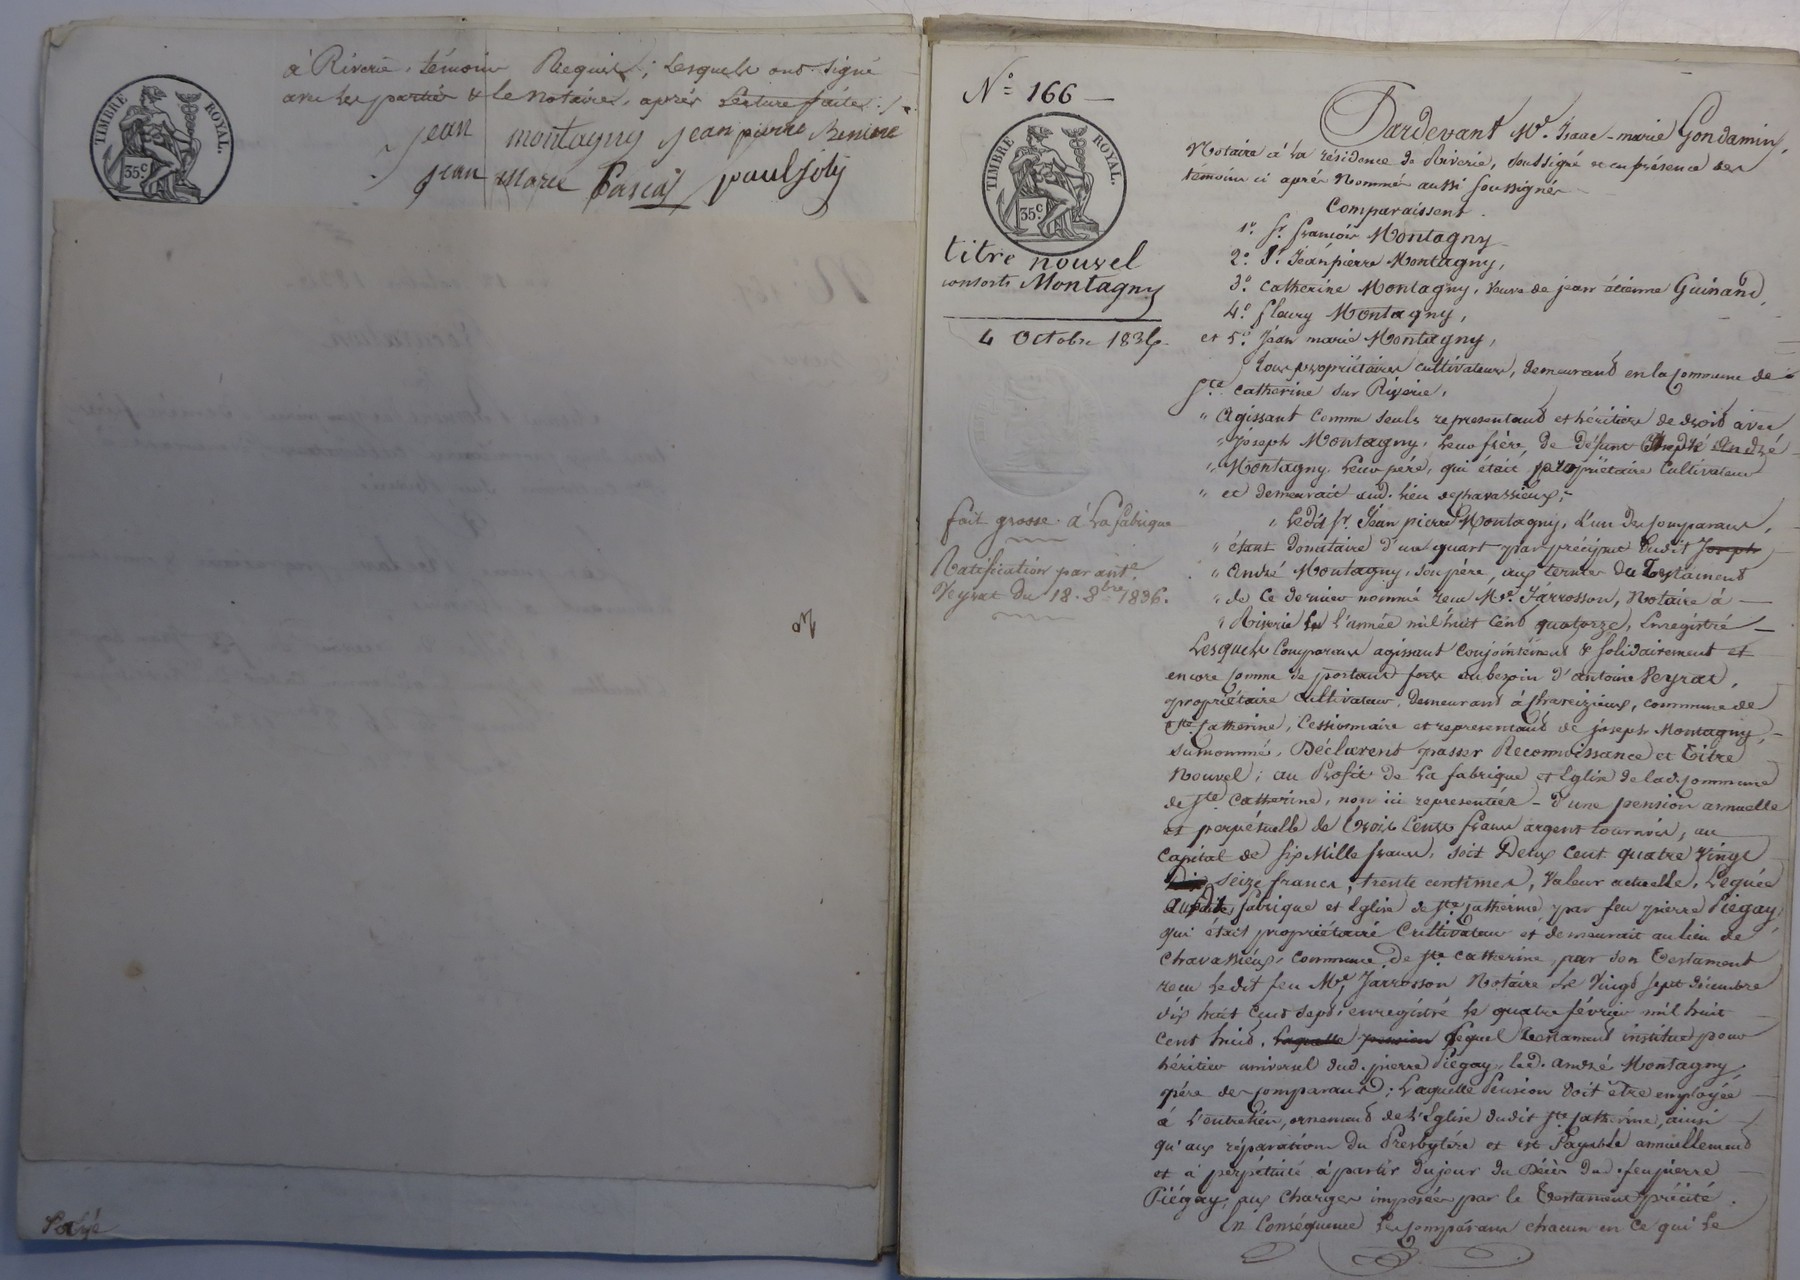 à Riverie, témoins Requis; lesquels ont signé
avec les parties & le notaire, après lecture faite.
TIMBRE ROYAL.
35 c
jean montagny jean pierre
jean marie pascal paul joly
N° 166
TIMBRE ROYAL.
35 c.
titre nouvel
consorts Montagny
4 Octobre 183
fait grosse à la fabrique
Ratification par ante
Veyrat du 18. 8bre 1836.
Pardevant Me. Isaac-marie Gondamin,
Notaire à la résidence de Riverie, soussigné et en présence des
témoins ci après Nommés aussi soussignés
Comparaissent.
1° Sr. françois Montagny
2° Sr. Jean pierre Montagny,
3° Catherine Montagny, veuve de jean étienne Guinand,
4° fleury Montagny,
et 5° Jean marie Montagny,
tous propriétaires cultivateurs, demeurant en la Commune de
Ste. Catherine sur Riverie,
" Agissant comme seuls représentans et héritiers de droit avec
" Joseph Montagny, leur frère, de défunt André
" Montagny leur père, qui était propriétaire Cultivateur
" et demeurait aud. lieu de chavassieux;
" Ledit Sr. Jean pierre Montagny, l'un des comparans,
" étant Donataire d'un quart par préciput dudit Joseph
" André Montagny, son père, aux termes du Testament
" de ce dernier nommé reçu Me. Jarrosson, Notaire à
" Riverie l'année mil huit cent quatorze, Enregistré
Lesquels Comparans agissant Conjointement & solidairement et
encore comme se portant forts au besoin d'antoine Veyrat,
propriétaire cultivateur, demeurant à , commune de
Ste. Catherine, Cessionnaire et représentant de joseph Montagny,
surnommé, Déclarent passer Reconnoissance et Titre
Nouvel; au Profit de la fabrique et Eglise de lad. commune
de Ste Catherine, non ici représentées - d'une pension annuelle
et perpétuelle de trois cents francs argent tournois, au
Capital de six Mille francs, soit Deux cent quatre Vingt
seize francs, trente centimes, Valeur actuelle, Léguée
fabrique et Eglise de Ste Catherine, par feu pierre Piegay,
qui était propriétaire Cultivateur et demeurait au lieu de
Chavassieux, Commune de Ste Catherine, par son Testament
reçu ledit feu Me. Jarrosson Notaire Le Vingt sept décembre
dix huit cent sept, enregistré le quatre février mil huit
cent huit, Laquelle pension Lequel testament institue pour
héritier universel dud. pierre Piegay, led. André Montagny,
père des comparants; Laquelle Pension doit être employée
à l'entretien, ornemens de l'Eglise dudit Ste Catherine, ainsi
qu'aux réparations du Presbytère et est Payable annuellement
et à perpétuité à partir du jour du Décès dud. feu pierre
Piégay, aux charges imposées par le Testament précité.
En Conséquence Les comparans chacun en ce qui le